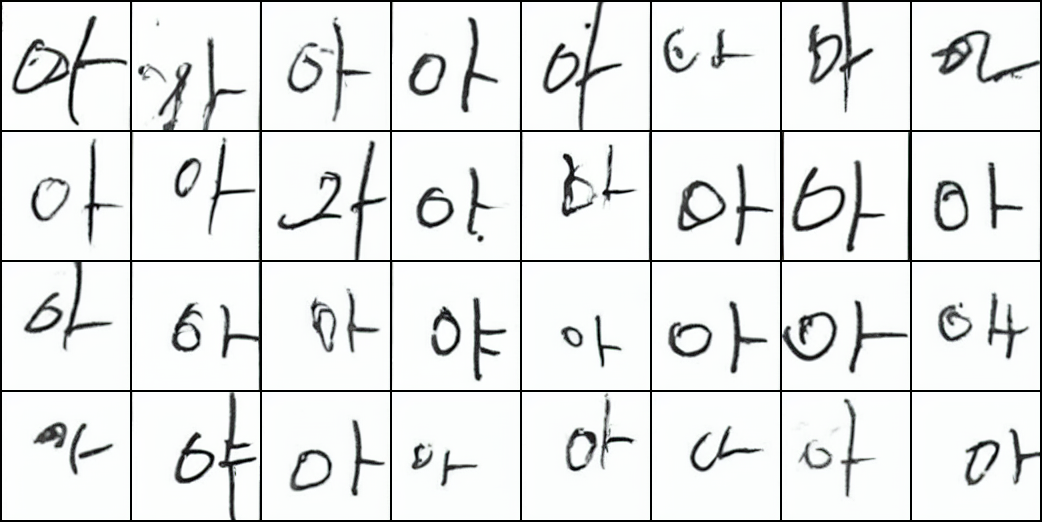 아 아 아 아 아 아
아 아 아 아 아 아 아
아 아 아 야 아 아 아
야 아 아 아 아 아